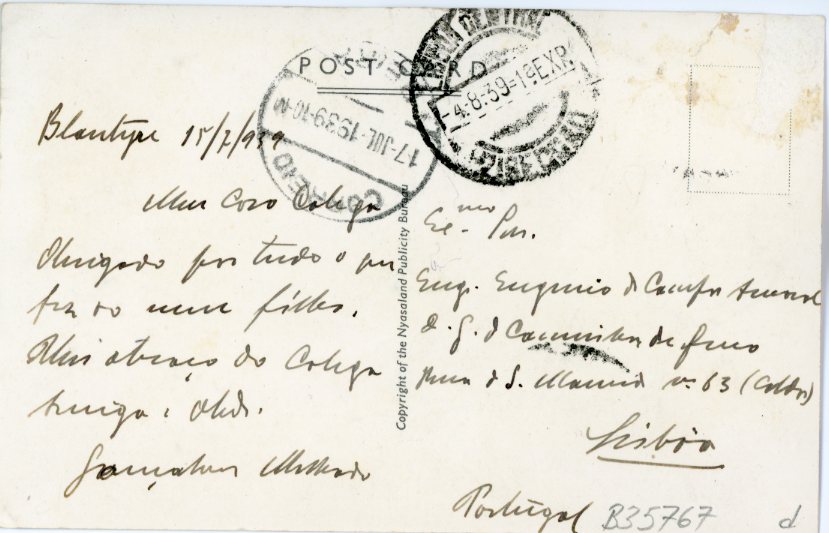 POST CARD
LISBOA CENTRAL
-4.8.39-18 EXP.
2ª DIRECÇÃO
17 JUL. 1939-10-M
CORREIO
Blantyre 15/7/939
Meu Caro Colega
Obrigado por tudo o que
fez ao meu filho.
Um abraço do Colega
Amigo e Obdo.
Gonçalves Machado
Copyright of the Nyasaland Publicity Bureau
Exmo Snr.
Eng. Eugenio de Campos Amaral
d. G. de Caminhos de ferro
Rua de S. Mamede nº 63 (Caldas)
Lisbôa
Portugal
B35767
d